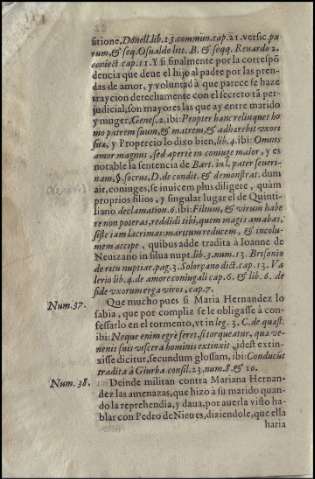 sitione, Donell. lib. 23. commun. cap. 21. versic. pu
rum, & seq. Osualdo lit. B. & seqq. Renardo 2.
coniect. cap. 11. Y si finalmente por la correspõ
dencia que deue el hijo al padre por las pren
das de amor, y voluntad a que parece se haze
traycion derechamente con el secreto tã per-
judicial, son mayores las que ay entre marido
y muger, Genes. 2. ibi: Propter hanc relinquet ho
mo patrem suum, & matrem, & adhærebit vxori
suæ, y Propercio lo dixo bien, lib. 4. ibi: Omnis
amor magnus, sed aperte in coniuge maior, y es
notable la sentencia de Bart. in l. pater seueri-
nam, §. socrus, D. de condit. & demonstrat. dum
ait, coniuges, se inuicem plus diligere, quàm
proprios filios, y singular lugar el de Quinti-
liano declamation. 6. ibi: Filium, & virum habe
re non poteras, reddidi tibi, quem magis amabas,
siste iam lacrimas: maritum reducem, & incolu-
mem accipe, quibus adde tradita à Ioanne de
Neuizano in silua nupt. lib. 3. num. 13. Brisonio
de ritu nuptiar. pag. 3. Solorzano dict. cap. 13. Va
lerio lib. 4. de amore coniugali cap. 6. & lib. 6. de
fide vxorum erga viros, cap. 7.
Num. 37. Que mucho pues si Maria Hernandez lo
sabia, que por complize se le obligasse à con-
fessarlo en el tormento, vt in leg. 3. C. de quæst.
ibi: Neque enim ægre feret, si torqueatur, qua ve-
nenis suis viscera hominis extinxit, idest extin-
xisse dicitur, secundum glossam, ibi: Conducũt
tradita à Giurba consil. 23. num. 8. & 10.
Num. 38. Deinde militan contra Mariana Hernan
dez las amenazas, que hizo à su marido quan
do la reprehendia, y daua, por auerla visto hab
lar con Pedro de Nieues, diziendole, que ella
haria